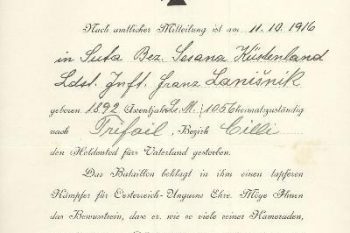 Nach amtlicher Mitteilung ist am 11.10.1916
in Suta Bez. Sesana Küstenland
Ldst. Inft. Franz Lanišnik
geboren 1892 Assentjahr L.M. 1056 heimatzuständig
nach Trifail, Bezirk Cilli
den Heldentod fürs Vaterland gestorben.
Das Bataillon beklagt in ihm einen tapferen
Kämpfer für Oesterreich-Ungarns Ehre. Möge Ihnen
das Bewusstsein, dass er, wie so viele seiner Kameraden,